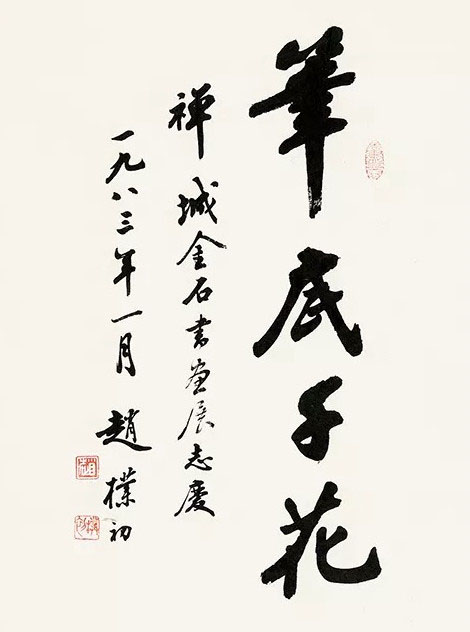 筆底千花
禅城金石書画展志慶
一九八三年一月 趙樸初